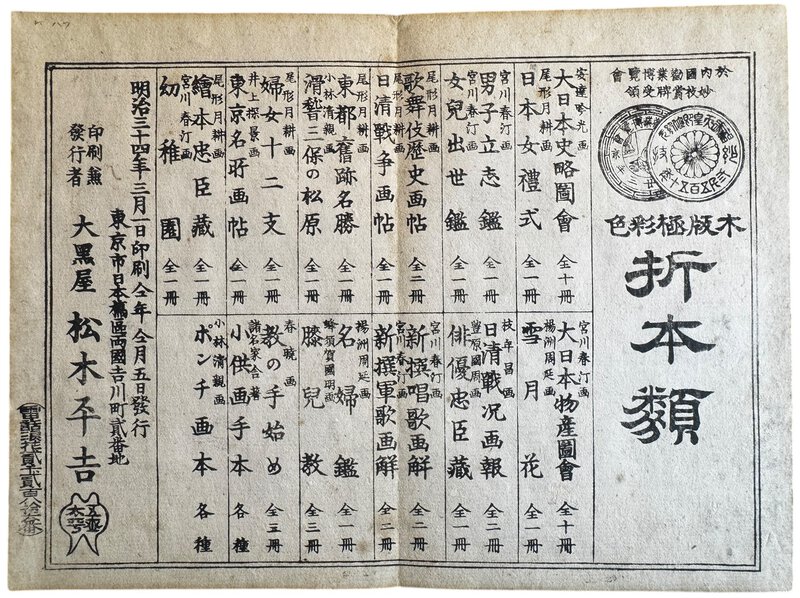 於內國勸業博覽會
妙技賞牌受領
木版極彩色
折本類
安達吟光画
大日本史略圖會 全十冊
尾形月耕画
日本女禮式 全一冊
宮川春汀画
男子立志鑑 全一冊
宮川春汀画
女兒出世鑑 全一冊
尾形月耕画
歌舞伎歴史画帖 全二冊
尾形月耕画
日清戰争画帖 全一冊
小林清親画
東都舊跡名勝 全一冊
小林清親画
滑稽三保の松原 全一冊
尾形月耕画
婦女十二支 全一冊
井上探景画
東京名所画帖 全一冊
尾形月耕画
繪本忠臣藏 全一冊
宮川春汀画
幼稚園 全一冊
宮川春汀画
大日本物産圖會 全十冊
楊洲周延画
雪月花 全一冊
枝年昌画
日清戰況画報 全二冊
豐原國周画
俳優忠臣藏 全一冊
宮川春汀画
新撰唱歌画解 全二冊
宮川春汀画
新撰軍歌画解 全二冊
楊洲周延画
名婦鑑 全一冊
蜂須賀國明画
膝兒教 全三冊
春暁画
教の手始め 全三冊
諸名家合著
小供画手本 各種
小林清親画
ポンチ画本 各種
明治三十四年三月一日印刷仝年仝月五日發行
東京市日本橋區両國吉川町貳番地
印刷兼發行者 大黑屋 松木平吉